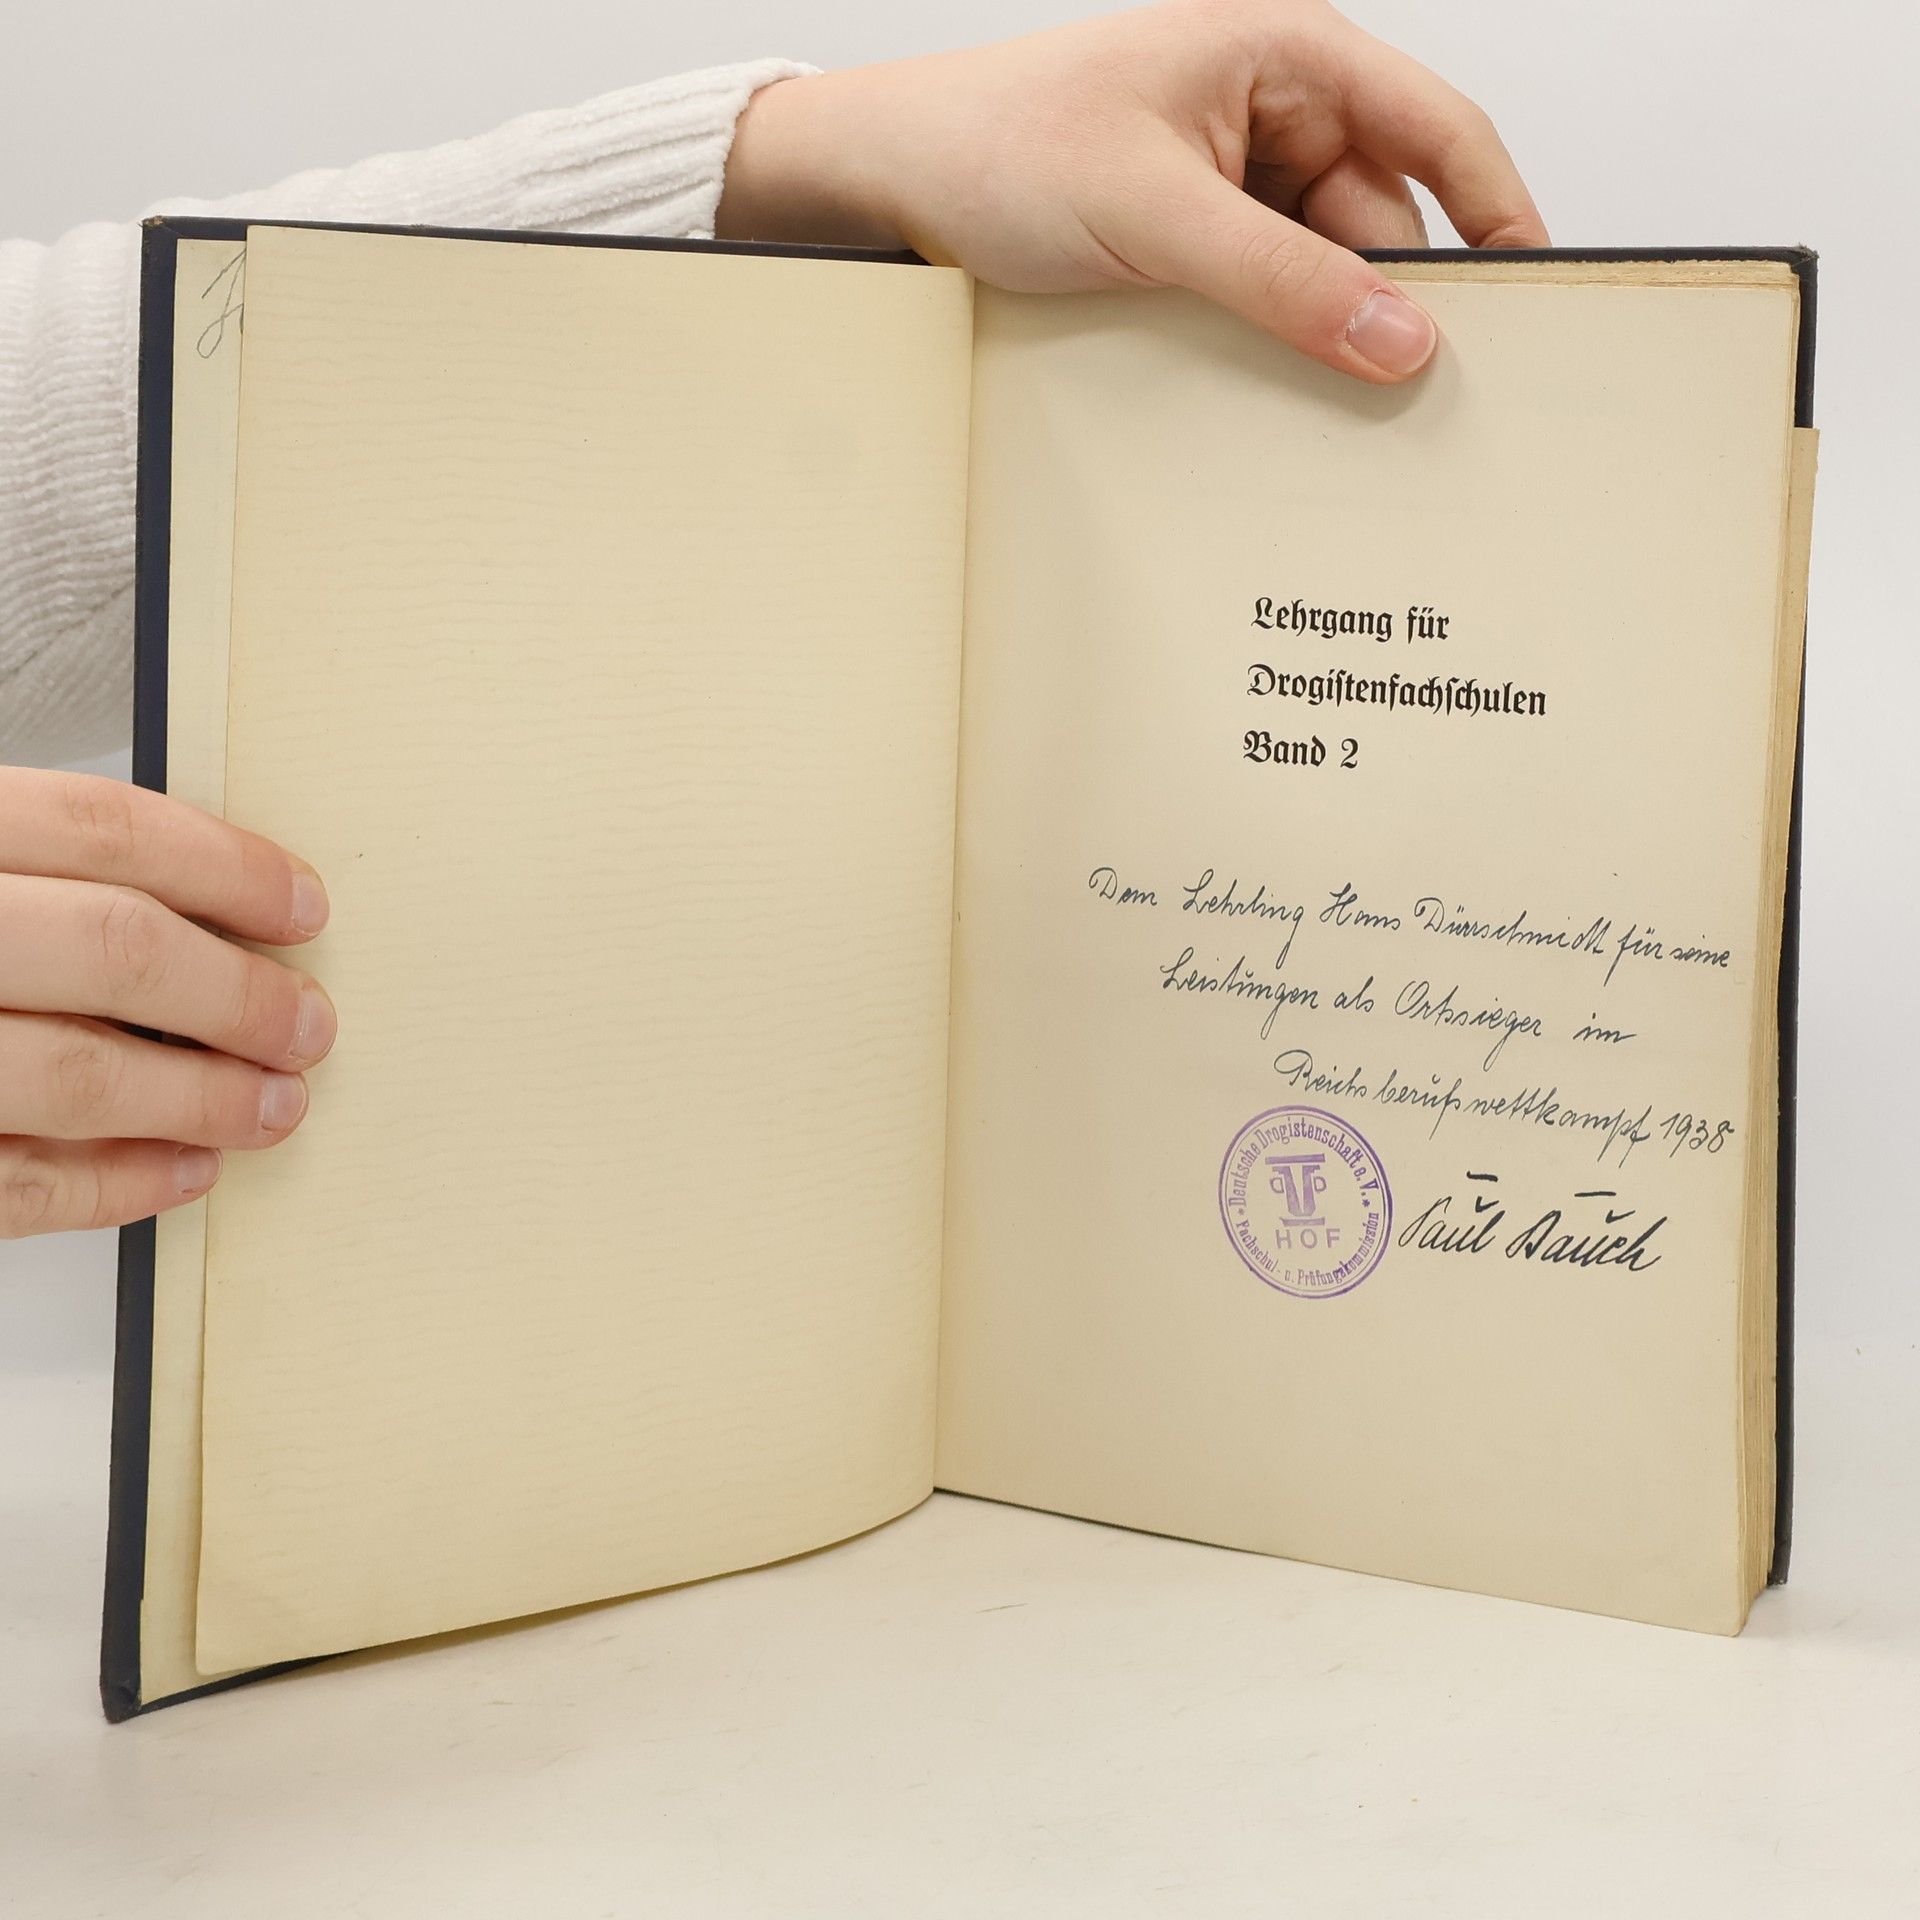 Lehrgang für
Drogistenfachschulen
Band 2
Dem Lehrling Hans Dürrschmidt für seine
Leistungen als Ortssieger im
Reichsberufswettkampf 1938
* Deutsche Drogistenschaft e.V. *
DD
HOF
Fachschul- u. Prüfungskommission
Paul Bauch